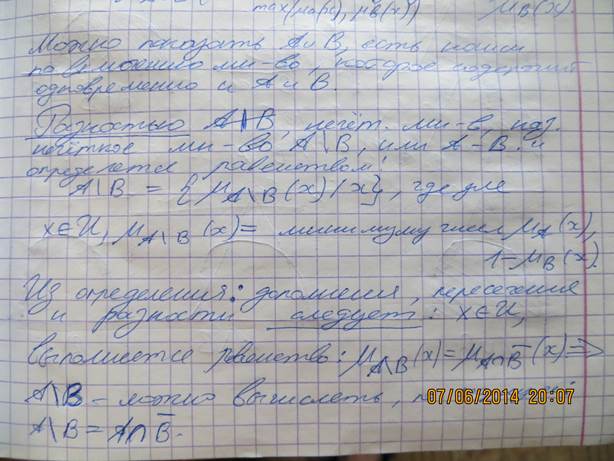 max(μA(x), μB(x)) μB(x)
Можно показать A∪B, есть наим
по включению мн-во, которое содержит
одновременно и A и B.
Разностью A\B, нечёт. мн-в, наз.
нечёткое мн-во A\B, или A-B. и
определяется равенством:
A\B = {μA\B(x)/x}, где для
x∈U, μA\B(x)= минимуму чисел μA(x),
1-μB(x).
Из определения: дополнения, пересечения
и разности следует: x∈U,
Выполняется рвенство: μA\B(x)=μA∩B̅(x)=>
A\B - можно вычислеть,
07/06/2014 20:07
A\B = A∩B̅.